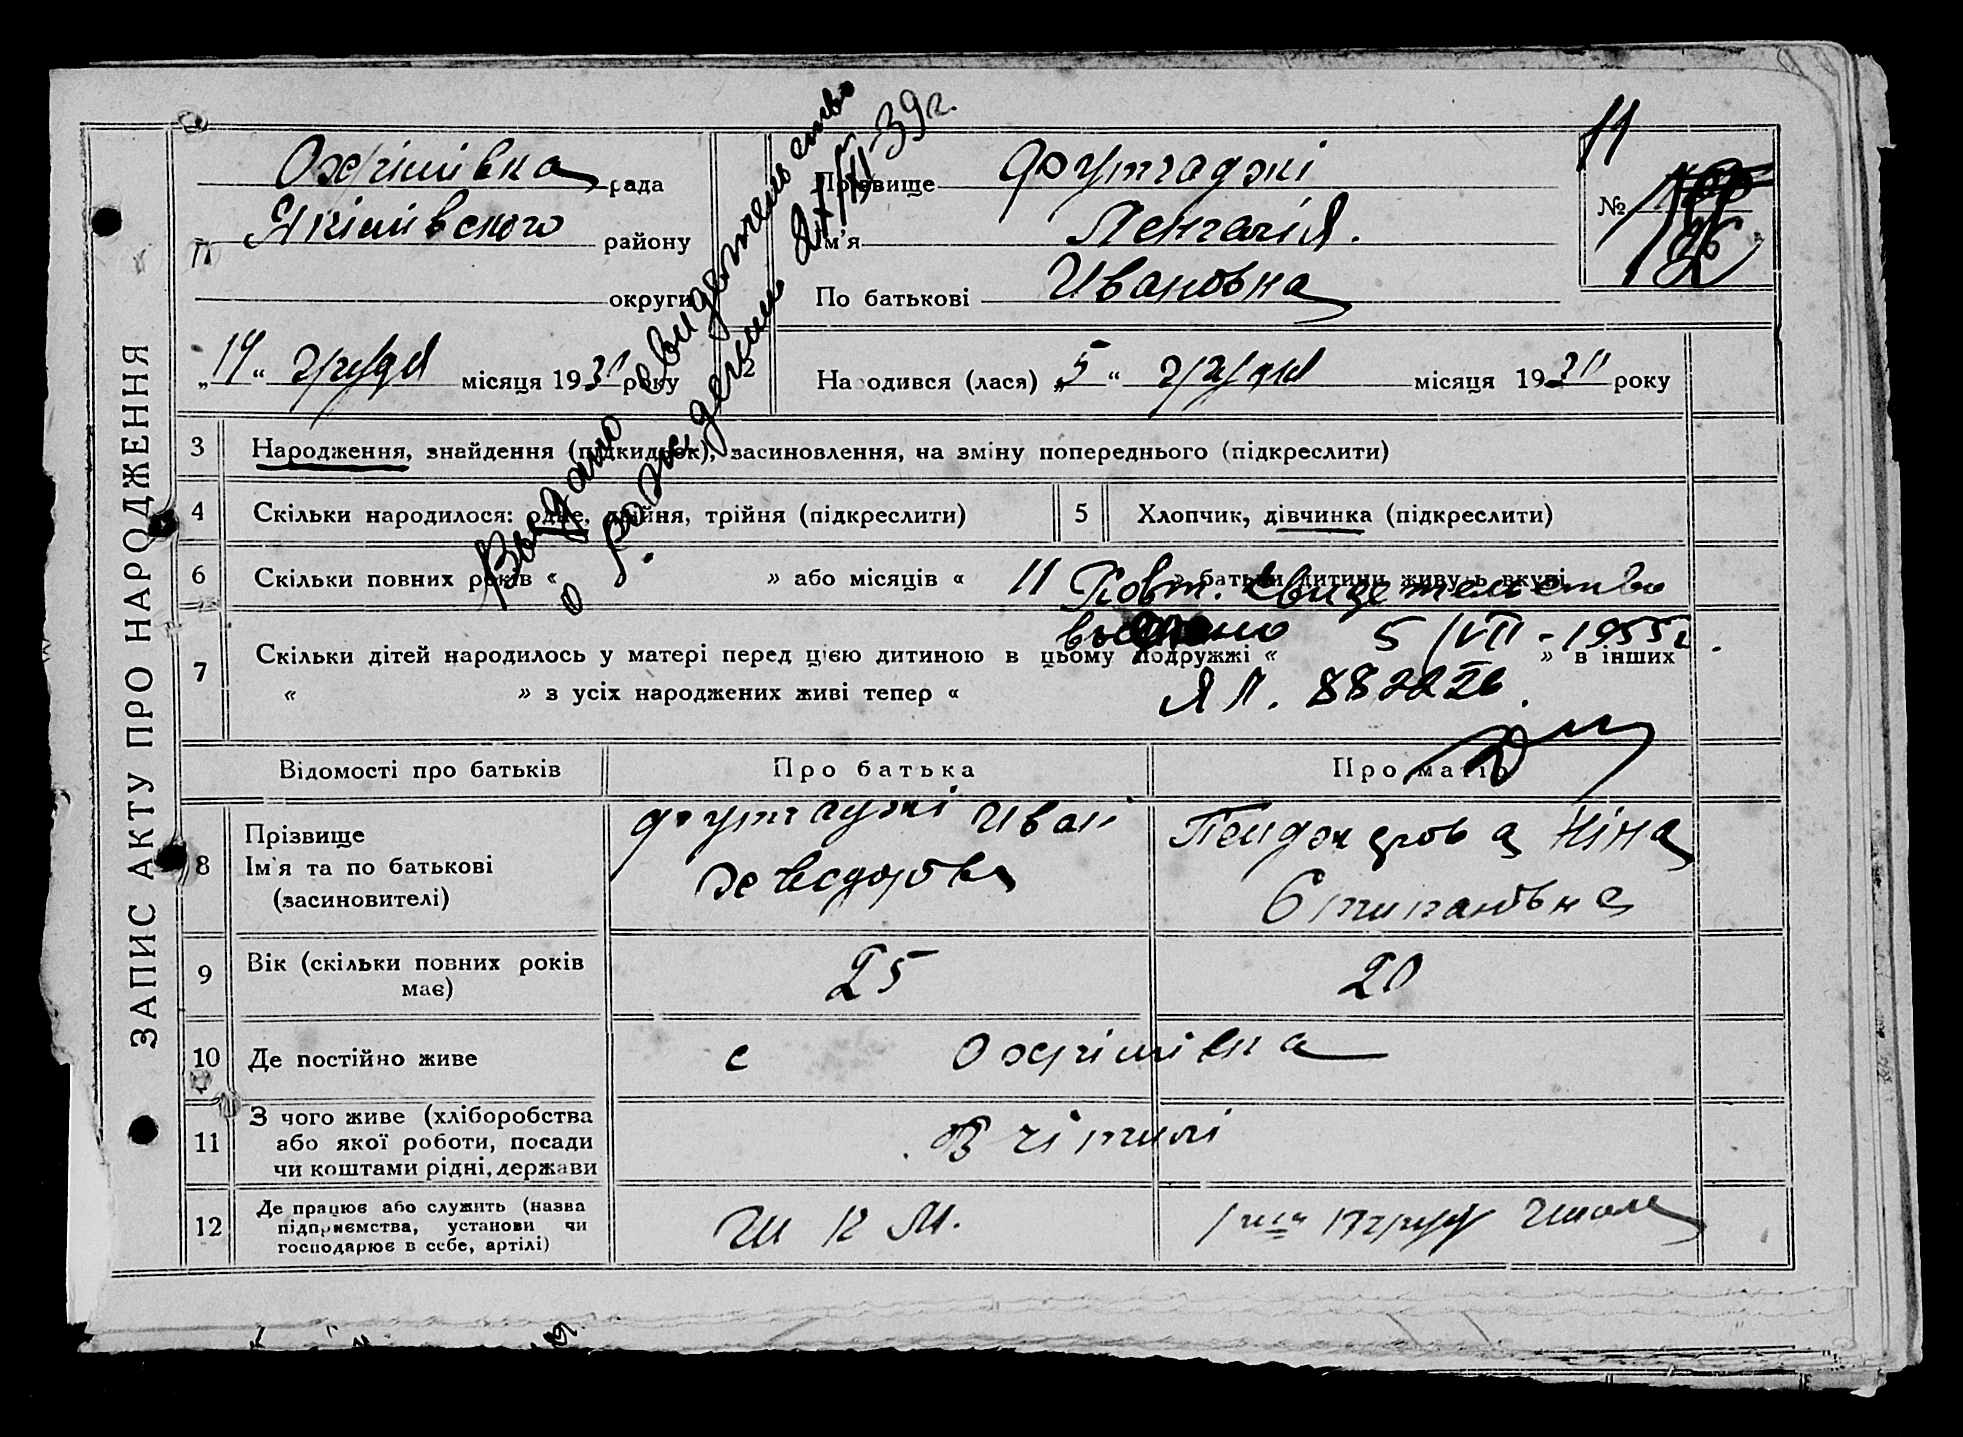 ЗАПИС АКТУ ПРО НАРОДЖЕННЯ
Охрімівка рада
Якімівского району
округи
„19“ грудня місяця 19 року
Прізвище Футгаджі
Ім'я
По батькові Ивановна
11
№
2
Народився (лася) „5“ грудня місяця 19 року
Выдано свидетельство
о рождении XII-39г.
3 Народження, знайдення (підкидьок), засиновлення, на зміну попереднього (підкреслити)
4 Скільки народилося: одне, двійня, трійня (підкреслити)
5 Хлопчик, дівчинка (підкреслити)
6 Скільки повних років « » або місяців « 11 » батьки дитини живуть вкупі
Повт. свидетельство
выдано 5/VII-1955г.
7 Скільки дітей народилось у матері перед цією дитиною в цьому подружжі « » в інших
« » з усіх народжених живі тепер «
ЯЛ.
Відомості про батьків
Про батька
Про матір
8 Прізвище
Ім'я та по батькові
(засновителі)
Футгаджі Иван
Ніна
9 Вік (скільки повних років
має)
25
20
10 Де постійно живе
с Охрімівка
11 З чого живе (хліборобства
або якої роботи, посади
чи коштами рідні, держави
Вчітилі
12 Де працює або служить (назва
підприємства, установи чи
господарює в себе, артілі)
Ш К М.